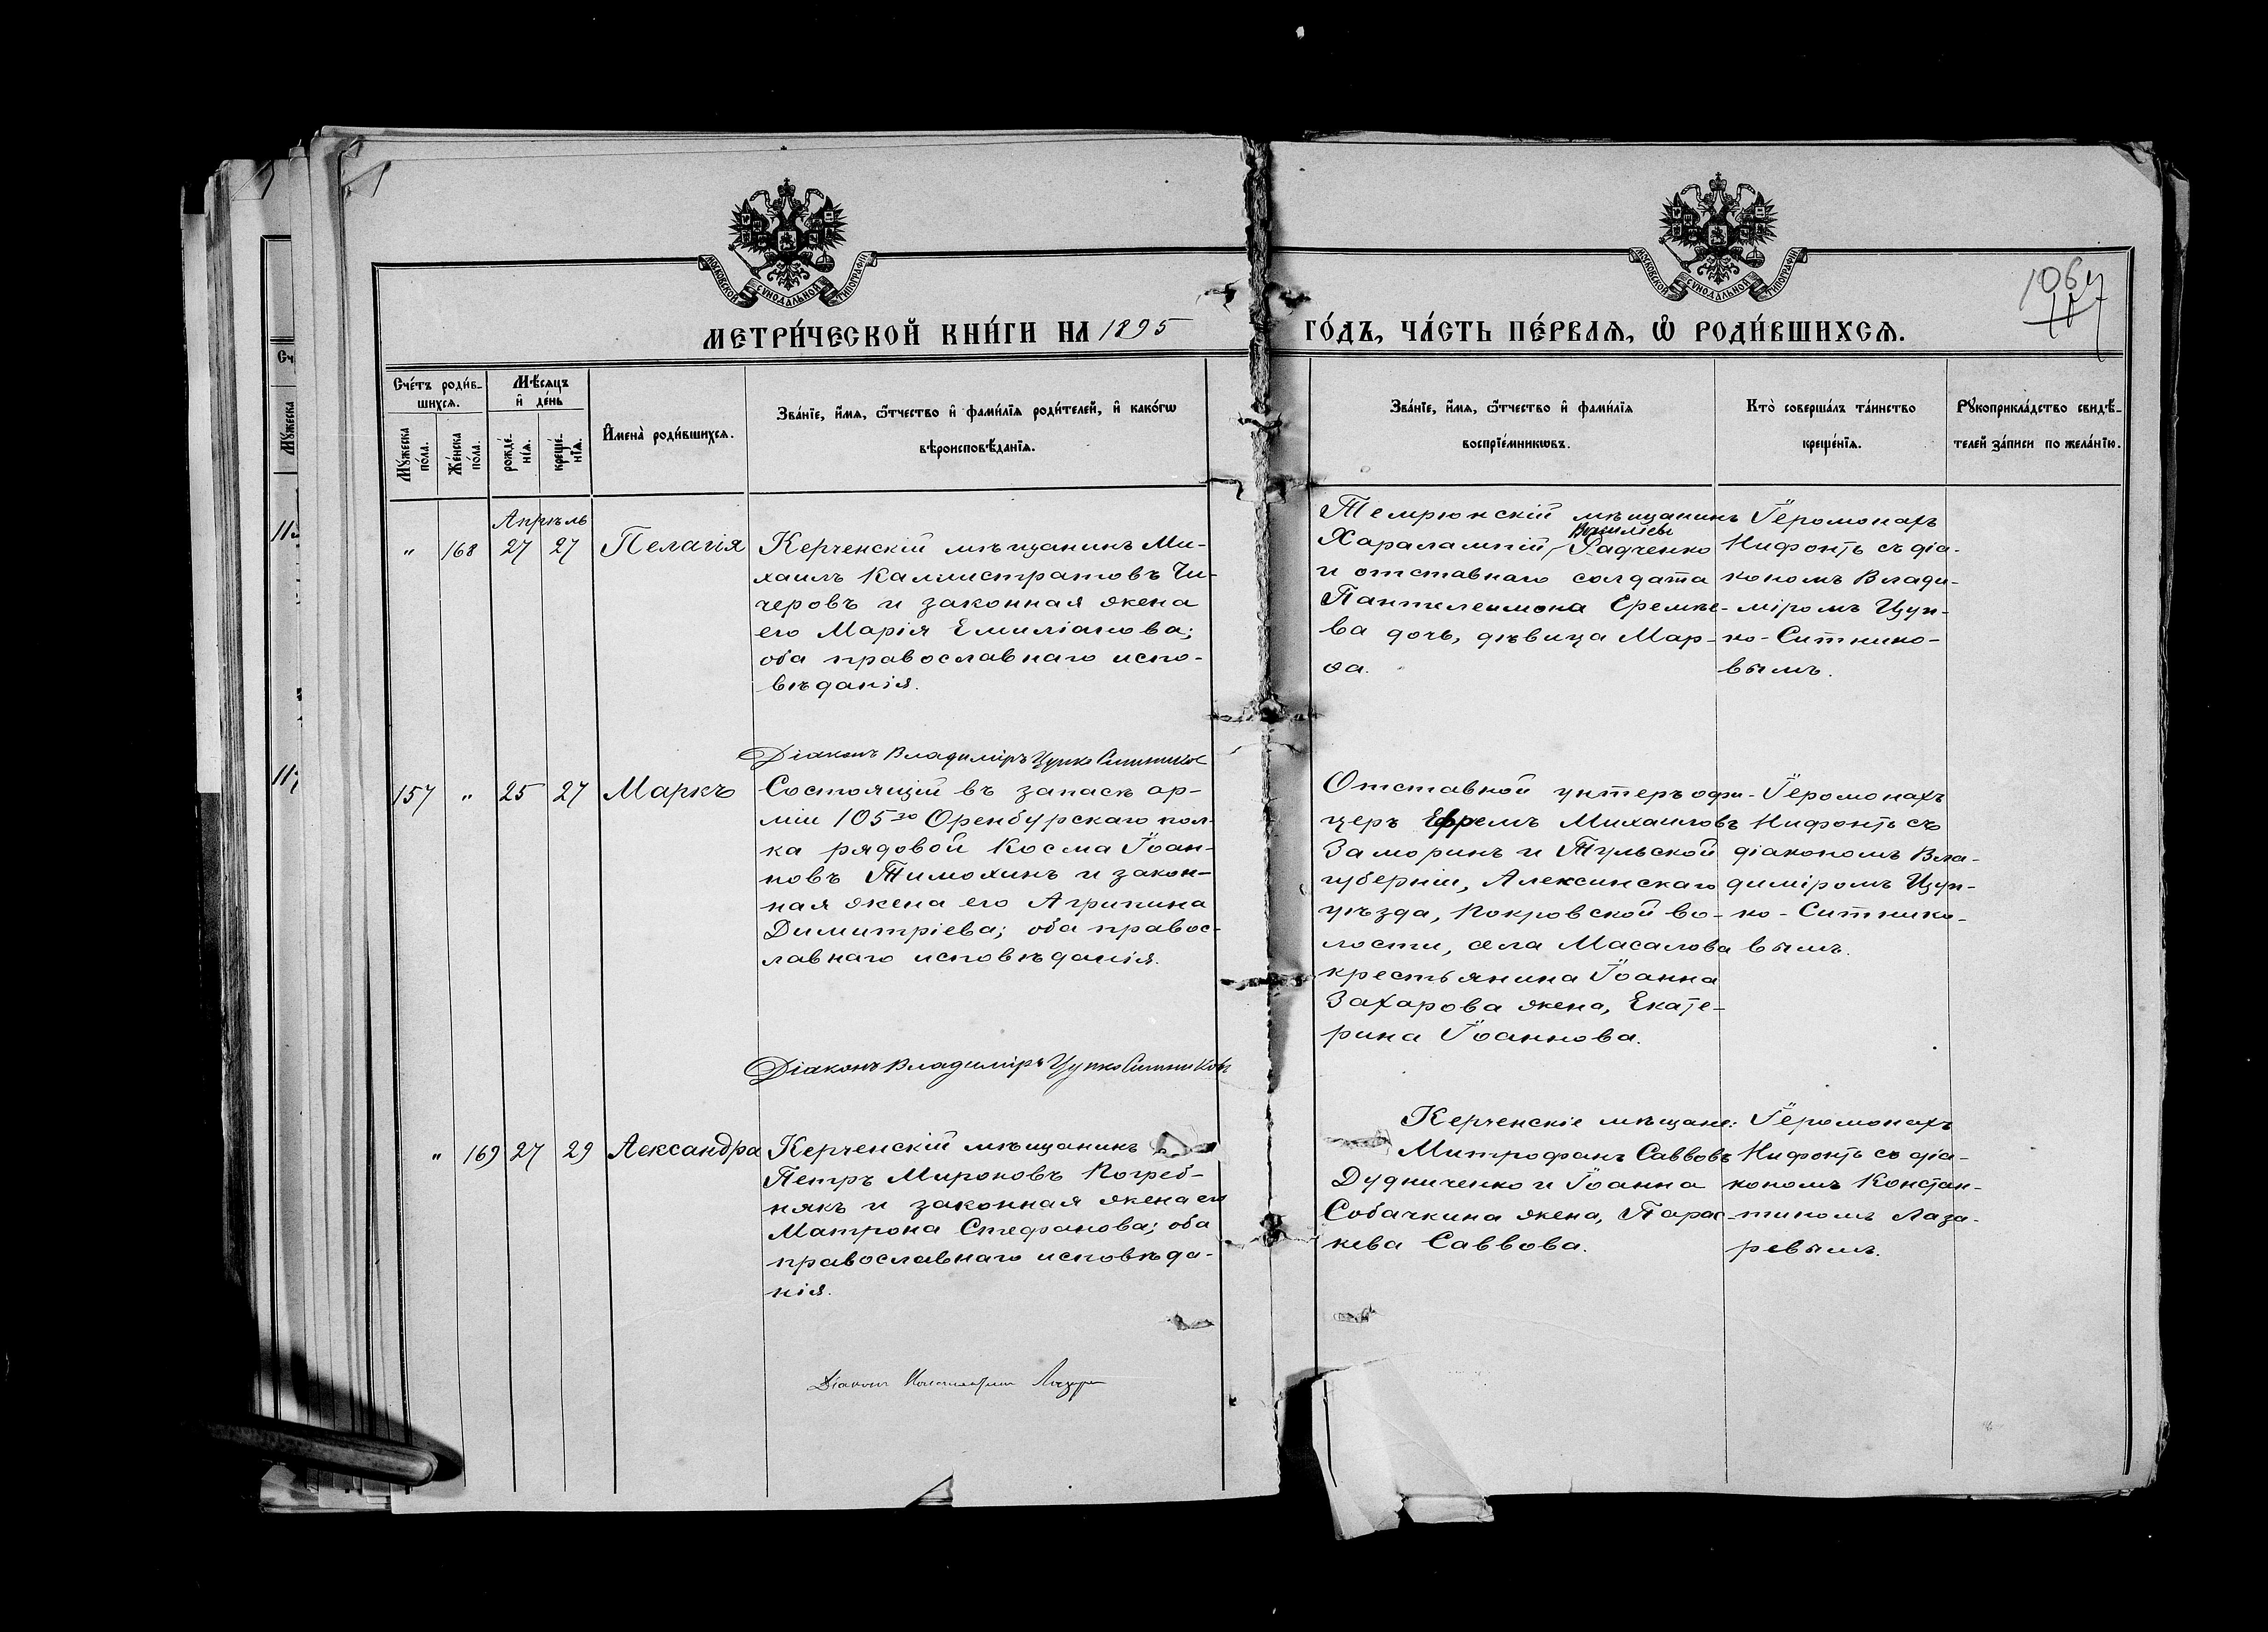 МОСКОВСКОЙ СѴНОДАЛЬНОЙ ТИПОГРАФІИ
МОСКОВСКОЙ СѴНОДАЛЬНОЙ ТИПОГРАФІИ
МЕТРИ́ЧЕСКОЙ КНИ́ГИ НА 1895
ГО́ДЪ, ЧА́СТЬ ПЕ́РВАѦ, Ѡ҆ РОДИ́ВШИХСѦ.
Сче́тъ роди́в-
шихсѧ.
Мꙋ́жеска
по́ла.
Же́нска
по́ла.
Мѣ́сѧцъ
и҆ де́нь
рожде́-
нїѧ.
креще́-
нїѧ.
И҆мена̀ роди́вшихсѧ.
Зва́нїе, и҆́мѧ, ѻ҆́тчество и҆ фами́лїѧ роди́телей, и҆ како́гѡ
вѣроисповѣ́данїѧ.
Зва́нїе, и҆́мѧ, ѻ҆́тчество и҆ фами́лїѧ
воспрїе́мникѡвъ.
Кто̀ соверша́лъ та́инство
креще́нїѧ.
Рꙋкоприкла́дство свидѣ́-
телей за́писи по жела́нїю.
Апрѣль
" 168 27 27 Пелагія
Керченскій мѣщанинъ Ми-
хаилъ Каллистратовъ Чи-
черовъ и законная жена
его Марія Емиліанова;
оба православнаго испо-
вѣданія.
Темрюкскій мѣщанинъ
Василіевъ
Харалампій Радченко
и отставнаго солдата
Пантелеимона Еремѣе-
ва дочь, дѣвица Мар-
ѳа.
Іеромонахъ
Нифонтъ съ діа-
кономъ Влади-
міромъ Цуп-
ко-Ситнико-
вымъ.
Діаконъ Владиміръ Цупко Ситников
157 " 25 27 Маркъ
Состоящій въ запасѣ ар-
міи 105го Оренбурскаго пол-
ка рядовой Косма Іоан-
новъ Тимохинъ и закон-
ная жена его Агрипина
Димитріева; оба правос-
лавнаго исповѣданія.
Отставной унтеръ офи-
церъ Ефремъ Михаиловъ
Заморинъ и Тульской
губерніи, Алексинскаго
уѣзда, Покровской во-
лости, села Масалова
крестьянина Іоанна
Захарова жена, Екате-
рина Іоаннова.
Іеромонахъ
Нифонтъ съ
діакономъ Вла-
диміромъ Цуп-
ко-Ситнико-
вымъ.
Діаконъ Владиміръ Цупко Ситников
" 169 27 29 Александра
Керченскій мѣщанинъ
Петръ Мироновъ Погреб-
някъ и законная жена его
Матрона Стефанова; оба
православнаго исповѣда-
нія.
Керченскіе мѣщане:
Митрофанъ Саввовъ
Дудниченко и Іоанна
Собачкина жена, Парас-
кева Саввова.
Іеромонахъ
Нифонтъ съ діа-
кономъ Констан-
тиномъ Лаза-
ревымъ.
Діаконъ Константинъ Лазарев